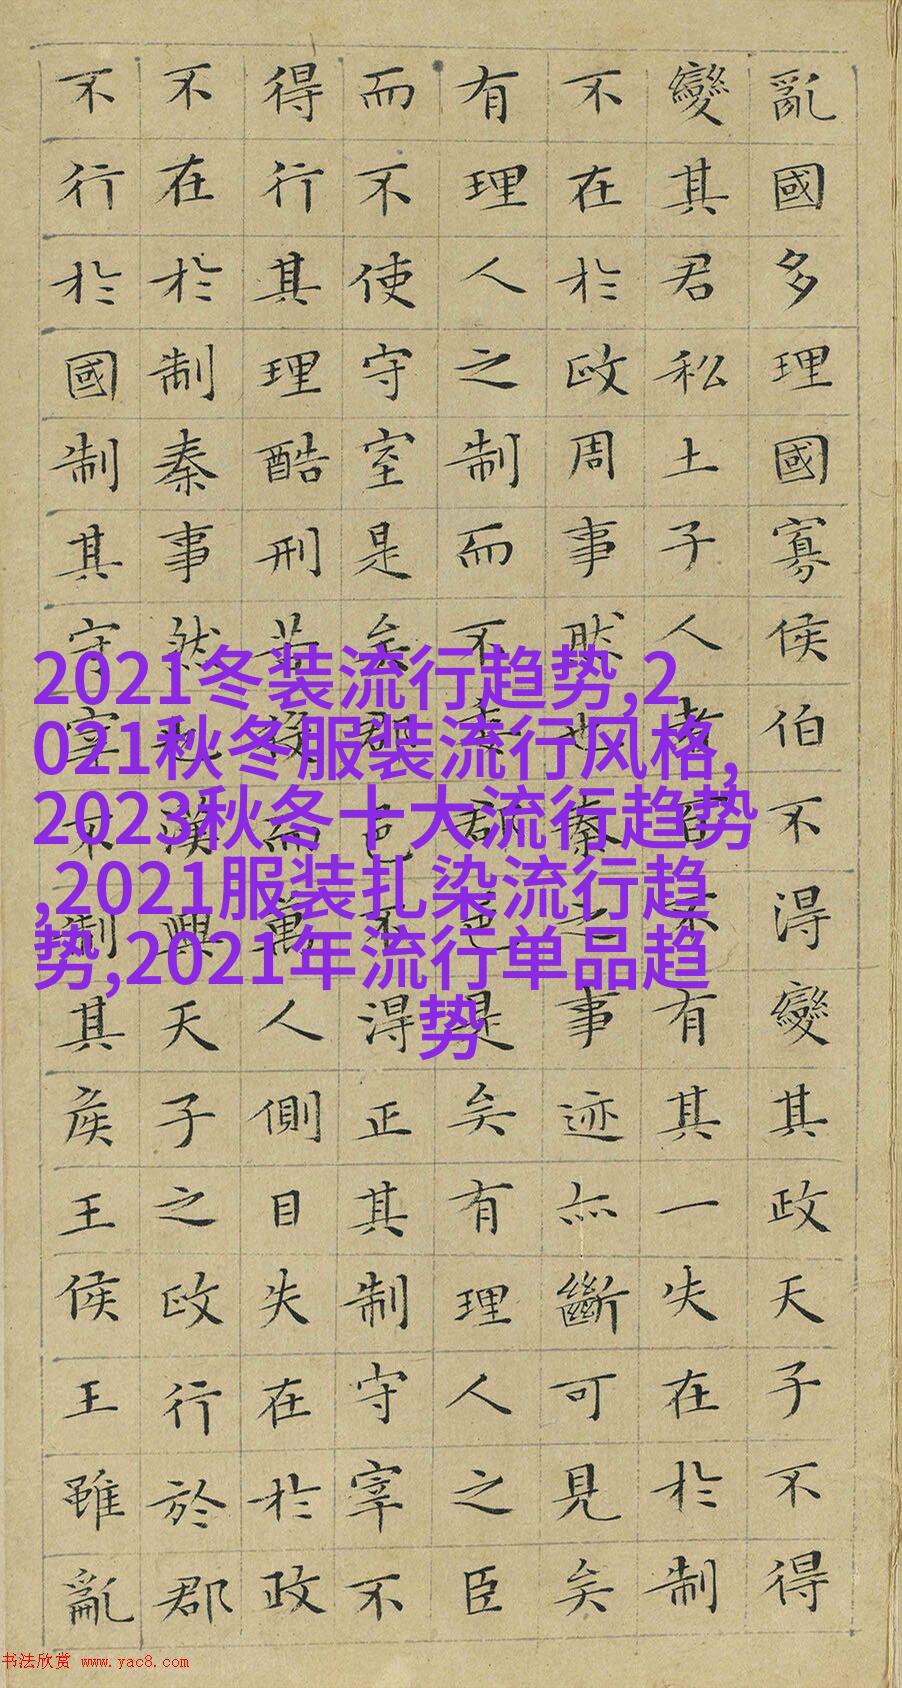 亂國多理國寡侯伯不得變其政天子不得
變其君私土子人者百不有其一失在於制
不在於政周事然也秦之事迹亦斷可見矣
有理人之制而不委郡邑是矣有理人之臣
而不使守宰是矣郡邑不得正其制守宰不
得行其理酷刑苦役而萬人側目失在於政
不在於制秦事然也漢興天子之政行於郡
不行於國制其守宰不制其侯王侯王雖亂
2021冬装流行趋势,2
021秋冬服装流行风格,
2023秋冬十大流行趋势
,2021服装扎染流行趋
势,2021年流行单品趋
势
书法欣赏 www.yac8.com